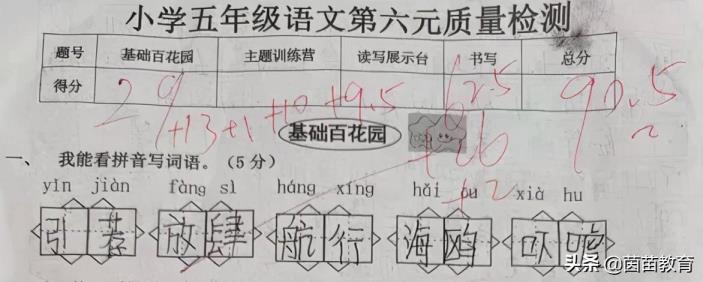 小学五年级语文第六元质量检测
题号 基础百花园 主题训练营 读写展示台 书写 总分
得分 29 +13 +1 +10 +9.5 62.5 +26 +2 90.5
基础百花园
一、 我能看拼音写词语。（5分）
yǐn jiàn fàng sì háng xíng hǎi ou xià hu
引 荐 放 肆 航 行 海 鸥
头条 @茵苗教育